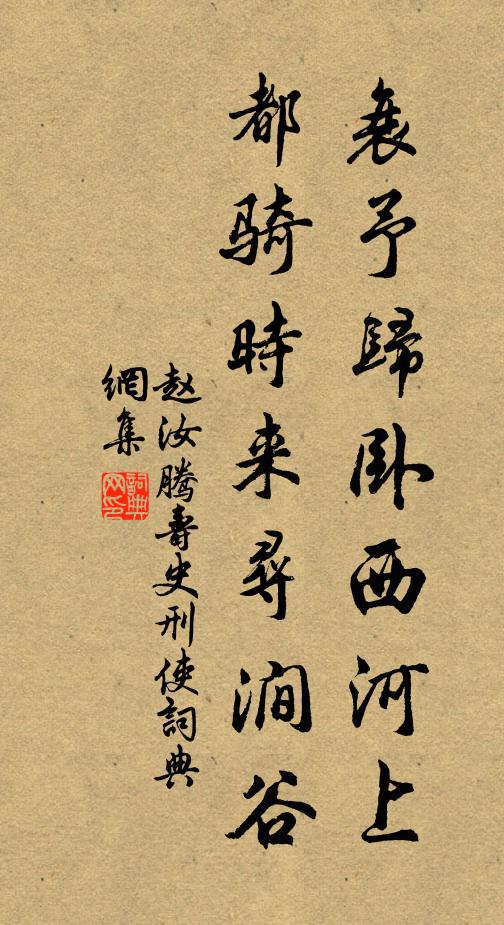 衰予歸卧西河上
都骑時来尋澗谷
赵汝腾壽史刑使詞典
網集
詞典網印